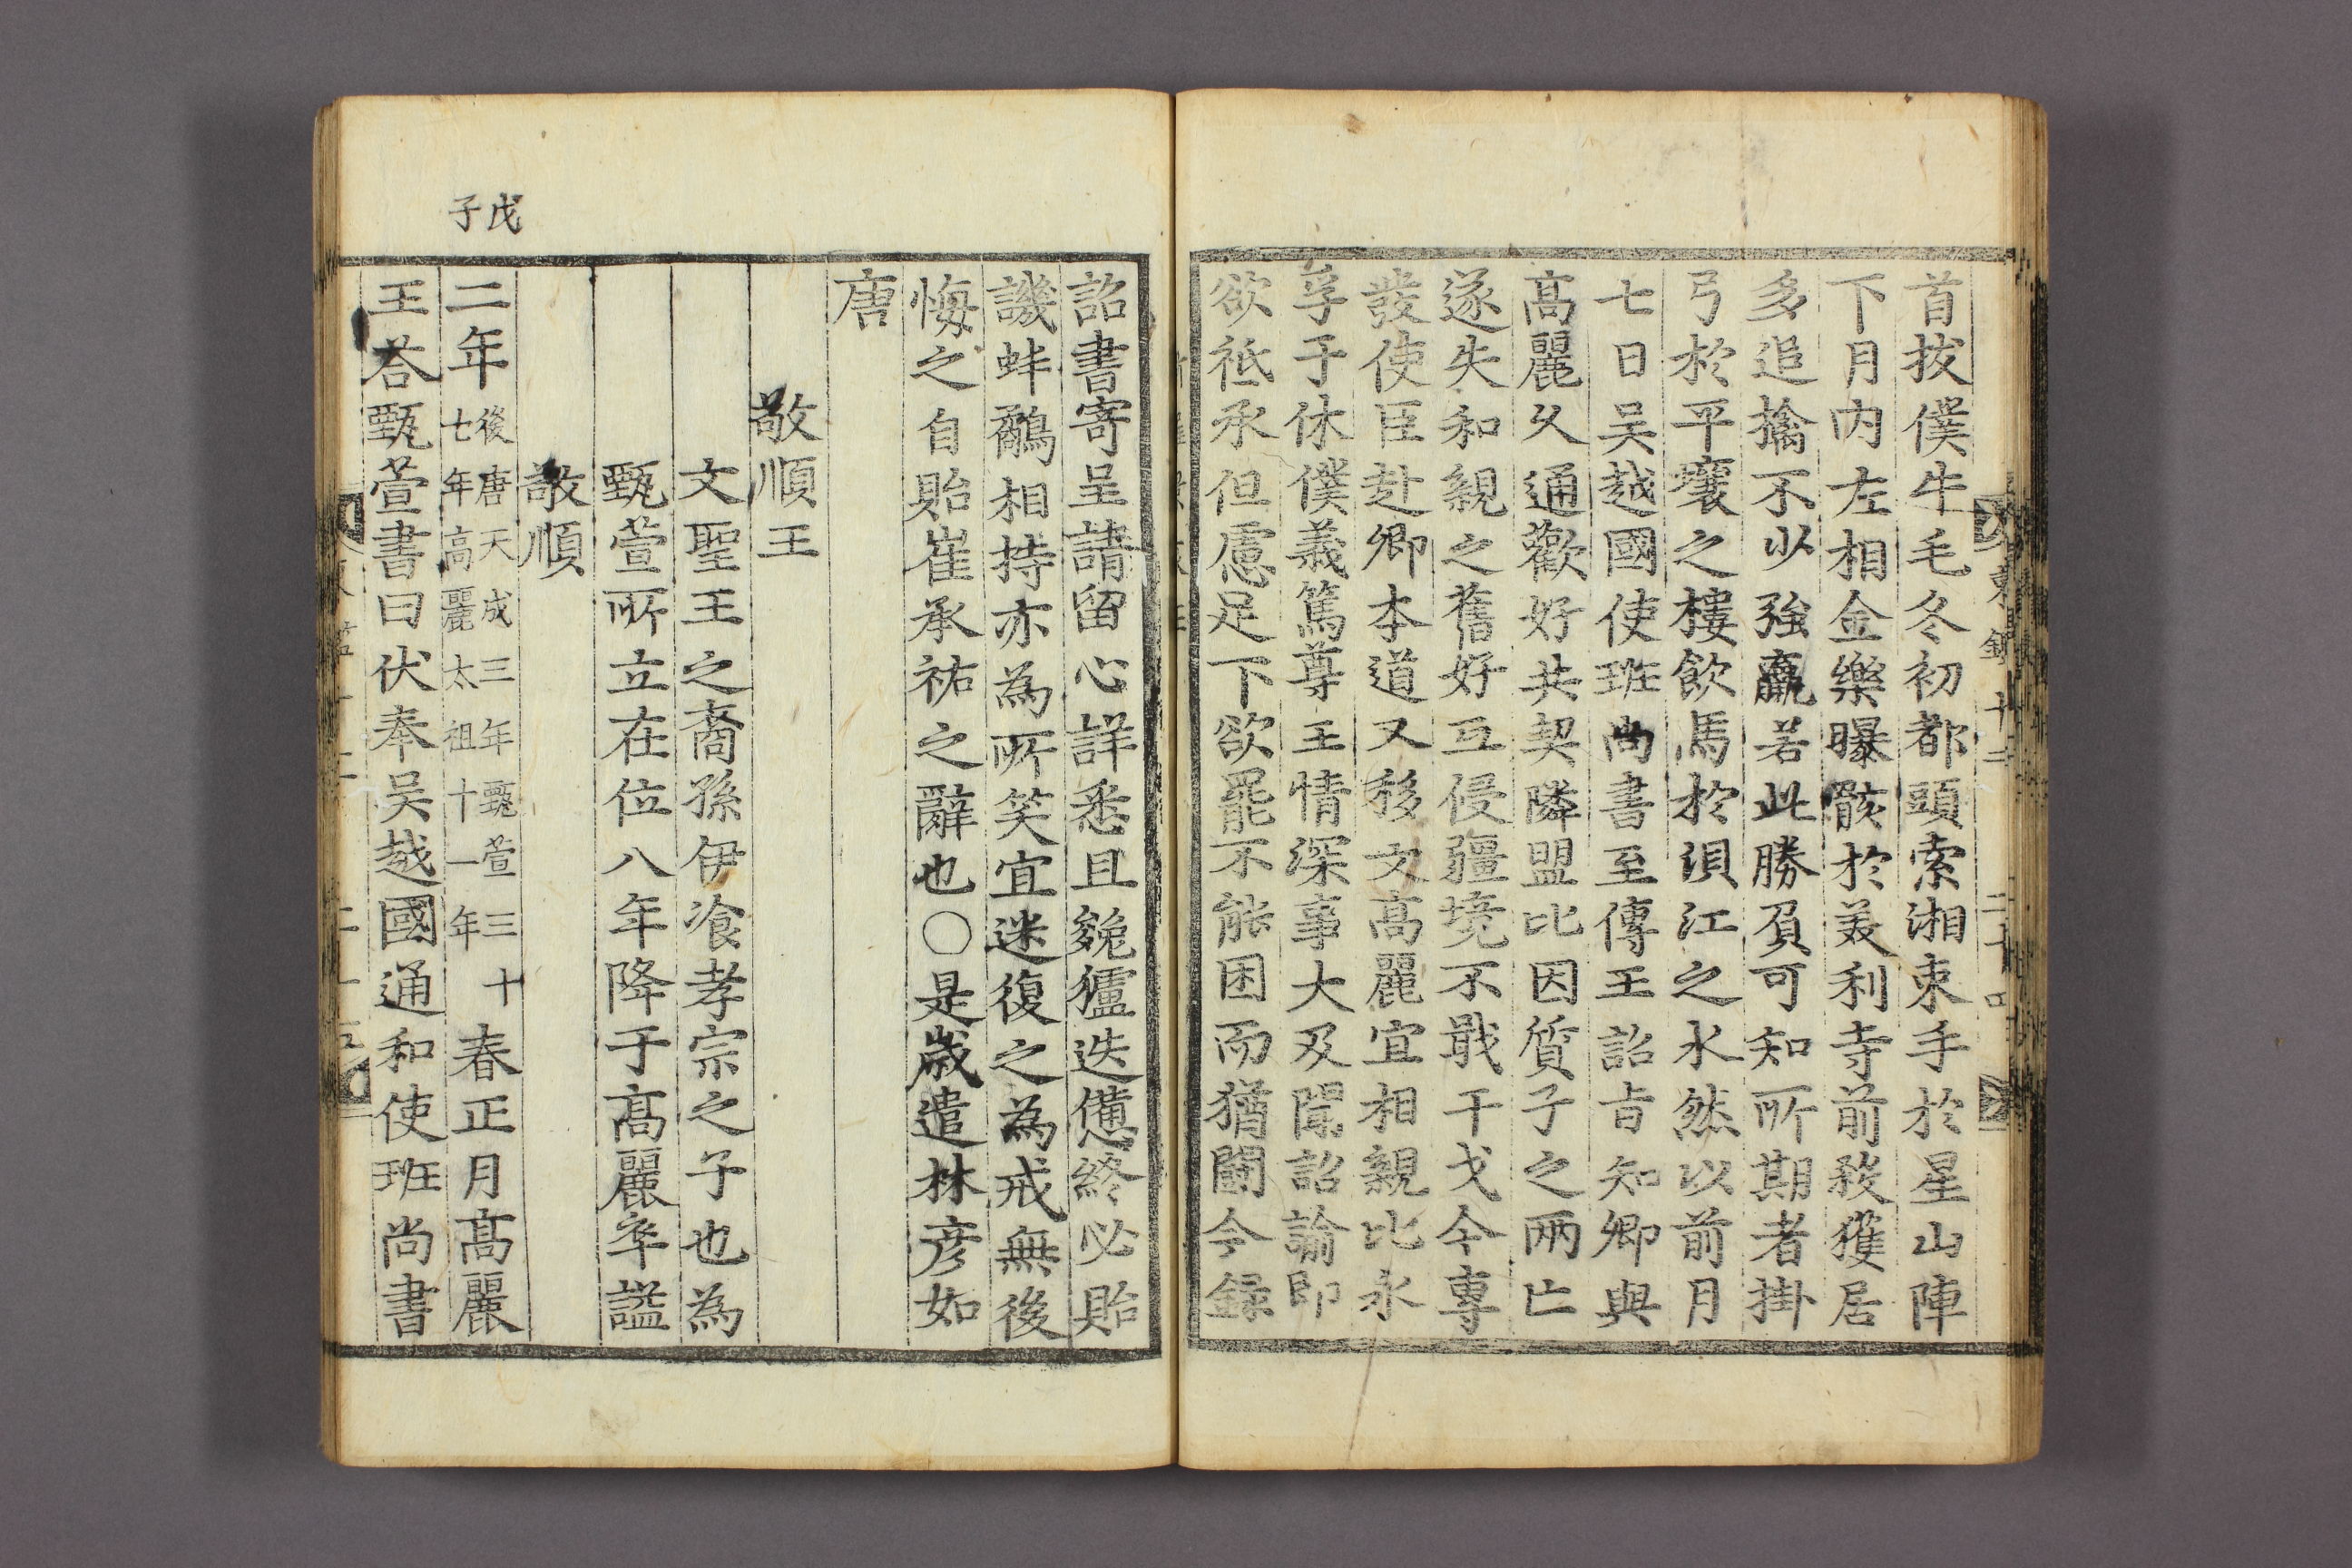 首拔僕牛毛冬初都頭索湘束手於星山陣
下月内左相金樂曝骸於美利寺前殺獲居
多追擒不少強羸若此勝負可知所期者掛
弓於平壤之樓飲馬於浿江之水然以前月
七日吴越國使班尚書至傳王詔旨知卿與
髙麗久通歡好共契隣盟比因質子之兩亡
遂失和親之舊好互侵疆境不戢干戈今專
發使臣赴卿本道又移文髙麗宜相親比永
孚于休僕義篤尊王情深事大及聞詔諭即
欲祗承但慮足下欲罷不能困而猶鬪今録
詔書寄呈請留心詳悉且㕙獹迭憊終必貽
譏蚌鷸相持亦為所笑宜迷復之為戒無後
悔之自貽崔承祐之辭也○是歲遣林彦如
唐
敬順王
文聖王之裔孫伊飡孝宗之子也為
甄萱所立在位八年降于髙麗率謚
敬順
戊子
二年後唐天成三年甄萱三十七年高麗太祖十一年春正月髙麗
王荅甄萱書曰伏奉吴越國通和使班尚書